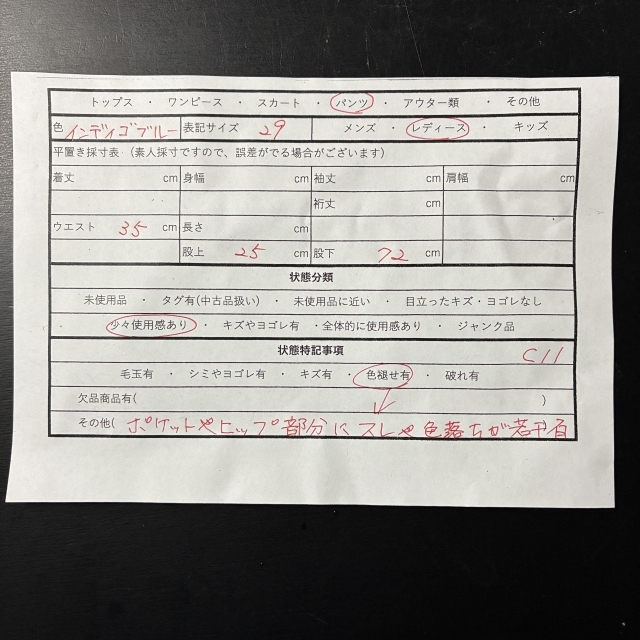 トップス ・ ワンピース ・ スカート ・ パンツ ・ アウター類 ・ その他
色 インディゴブルー 表記サイズ 29 メンズ ・ レディース ・ キッズ
平置き採寸表 (素人採寸ですので、誤差がでる場合がございます)
着丈 cm 身幅 cm 袖丈 cm 肩幅 cm
裄丈 cm
ウエスト 35 cm 長さ cm
股上 25 cm 股下 72 cm
状態分類
未使用品 ・ タグ有(中古品扱い) ・ 未使用に近い ・ 目立ったキズ・ヨゴレなし
少々使用感あり ・ キズやヨゴレ有 ・全体的に使用感あり ・ ジャンク品
状態特記事項 C11
毛玉有 ・ シミやヨゴレ有 ・ キズ有 ・ 色褪せ有 ・ 破れ有
欠品商品有( )
その他( ポケットやヒップ部分にスレや色落ちが若干有